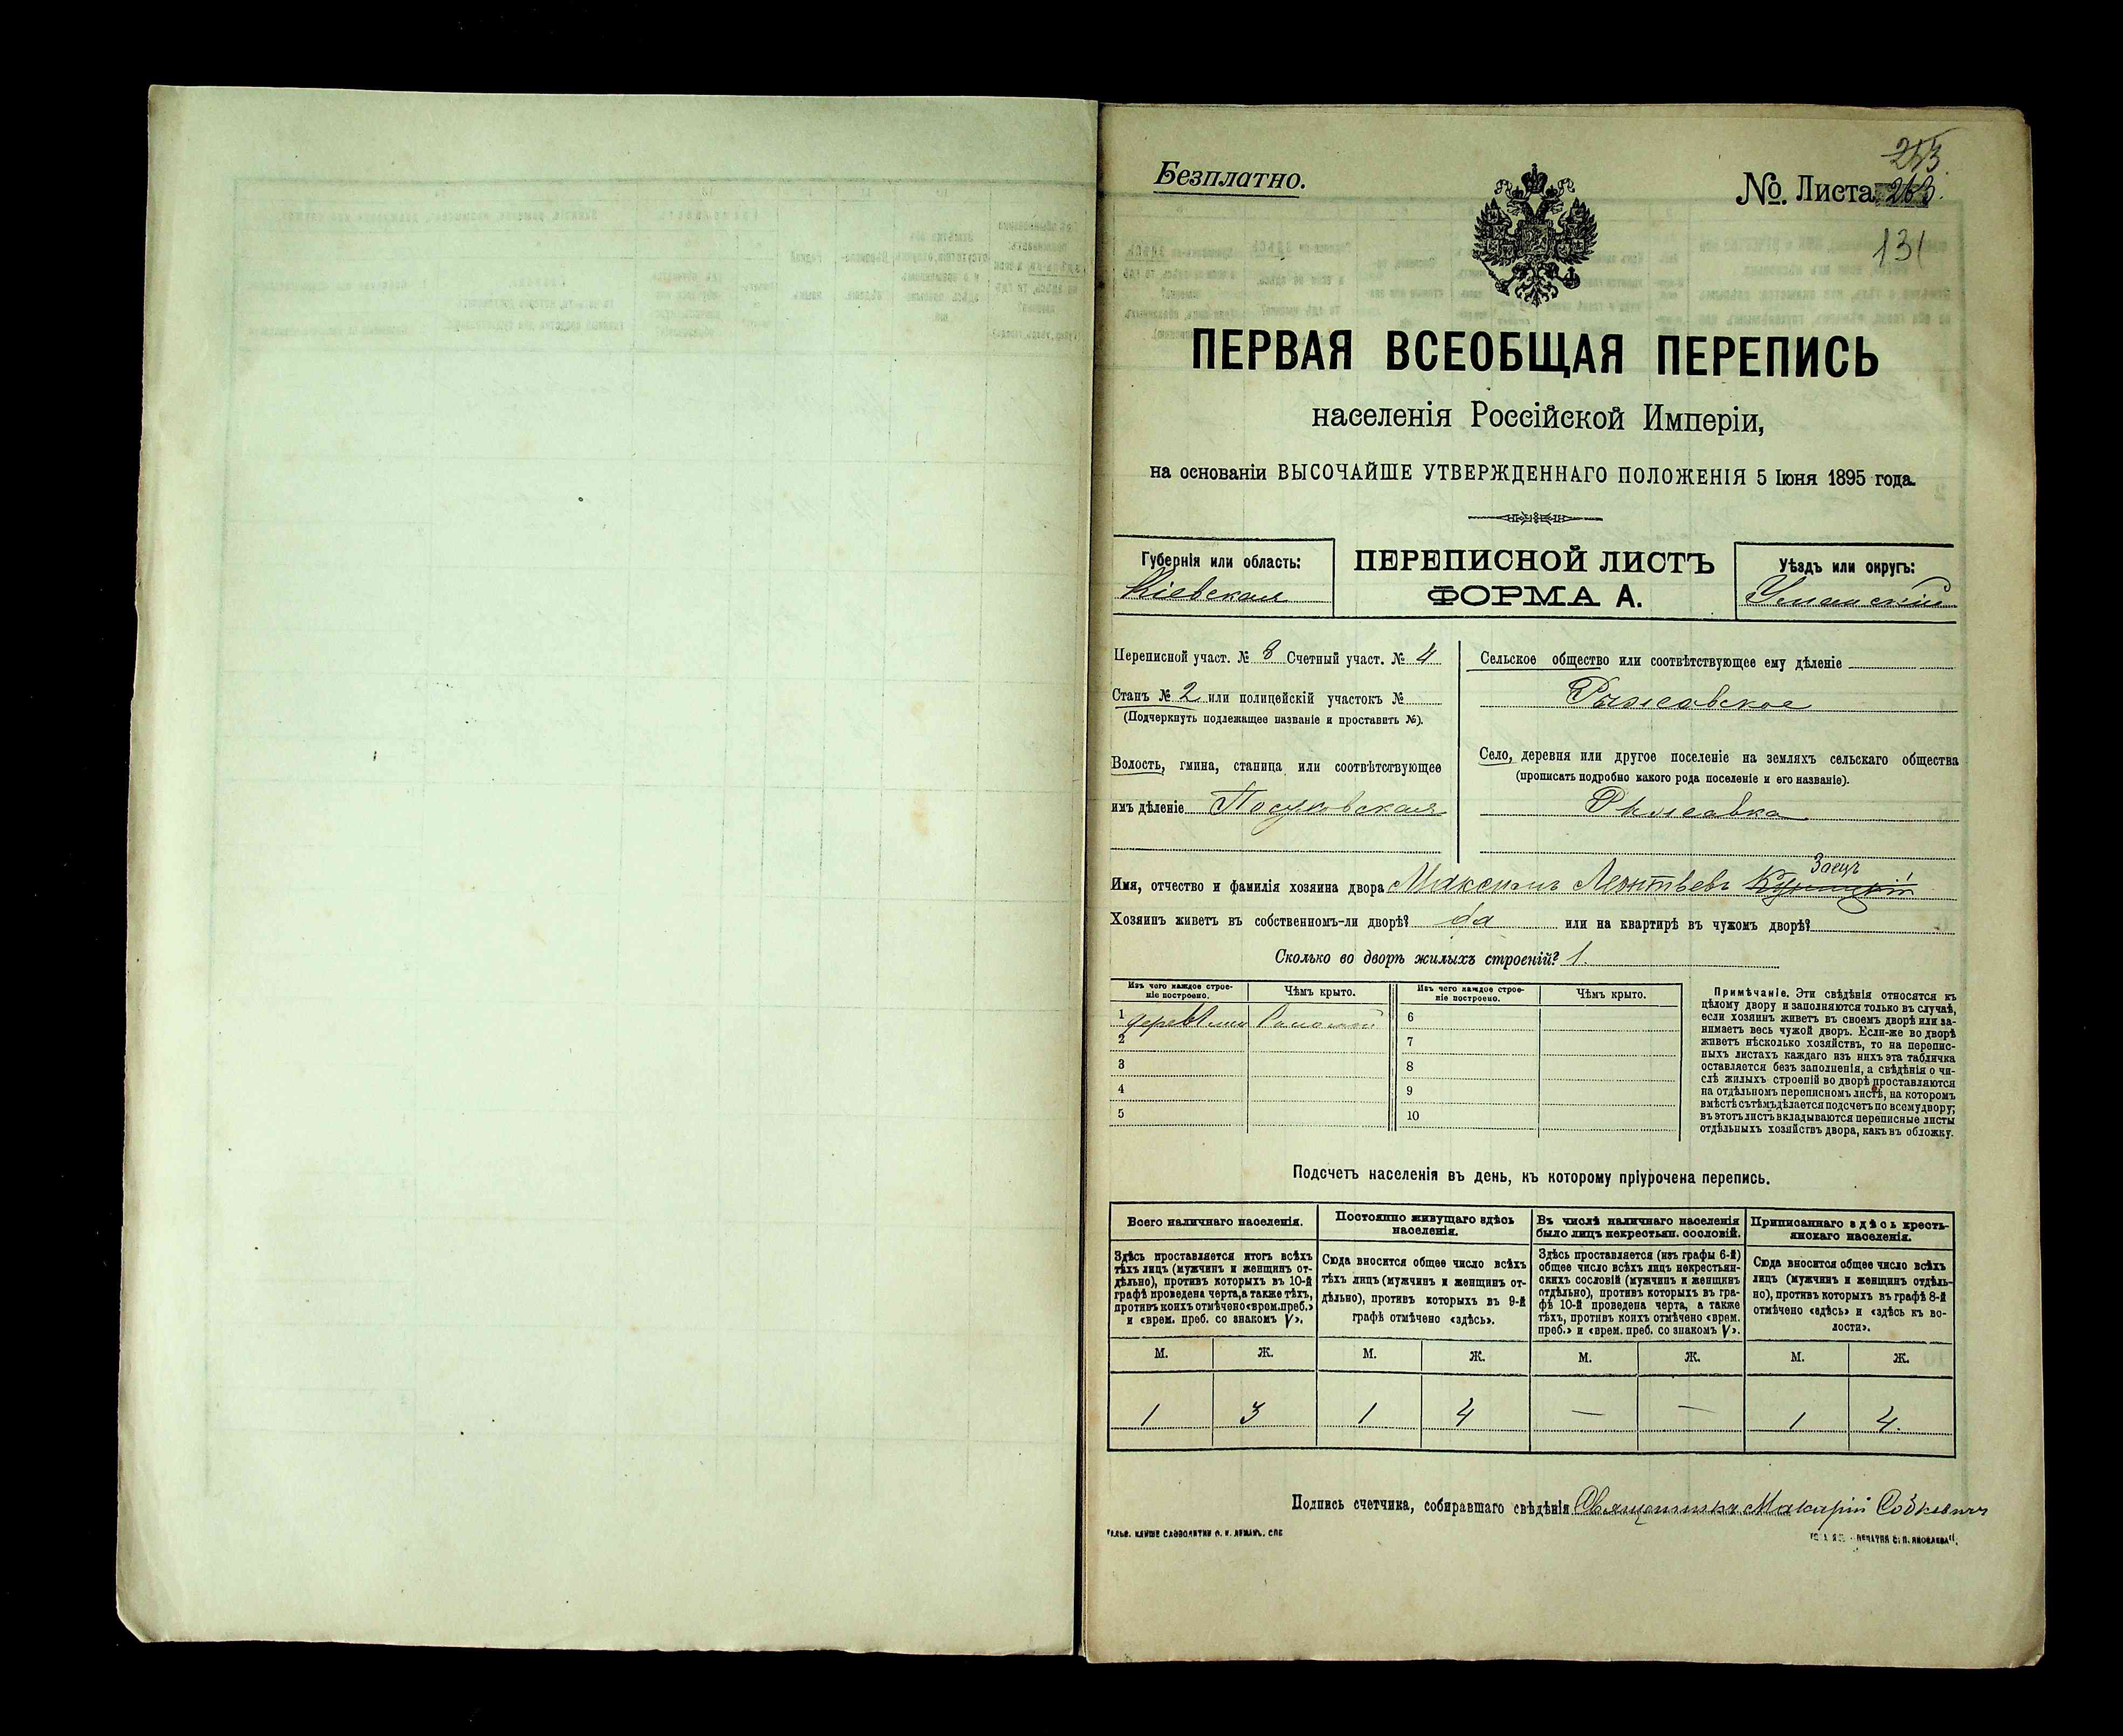 Безплатно.
253
№. Листа 263.
131
ПЕРВАЯ ВСЕОБЩАЯ ПЕРЕПИСЬ
населенія Россійской Имперіи,
на основаніи ВЫСОЧАЙШЕ УТВЕРЖДЕННАГО ПОЛОЖЕНІЯ 5 Іюня 1895 года.
Губернія или область:
Кіевская
ПЕРЕПИСНОЙ ЛИСТЪ
ФОРМА А.
Уѣздъ или округъ:
Уманскій
Переписной участ. № 8 Счетный участ. № 4
Станъ № 2 или полицейскій участокъ №
(Подчеркнуть подлежащее названіе и проставить №).
Волость, гмина, станица или соотвѣтствующее
имъ дѣленіе Посуховская
Сельское общество или соотвѣтствующее ему дѣленіе
Рыжавское
Село, деревня или другое поселеніе на земляхъ сельскаго общества
(прописать подробно какого рода поселеніе и его названіе).
Рыжавка
Заецъ
Имя, отчество и фамилія хозяина двора Максимъ Леонтьевъ
Хозяинъ живетъ въ собственномъ-ли дворѣ? да или на квартирѣ въ чужомъ дворѣ?
Сколько во дворѣ жилыхъ строеній? 1.
Изъ чего каждое строе-
ніе построено.
Чѣмъ крыто.
Изъ чего каждое строе-
ніе построено.
Чѣмъ крыто.
1 Соломой 6
2 7
3 8
4 9
5 10
Примѣчаніе. Эти свѣдѣнія относятся къ
цѣлому двору и заполняются только въ случаѣ,
если хозяинъ живетъ въ своемъ дворѣ или за-
нимаетъ весь чужой дворъ. Если-же во дворѣ
живетъ нѣсколько хозяйствъ, то на перепис-
ныхъ листахъ каждаго изъ нихъ эта табличка
оставляется безъ заполненія, а свѣдѣнія о чи-
слѣ жилыхъ строеній во дворѣ проставляются
на отдѣльномъ переписномъ листѣ, на которомъ
вмѣстѣ съ тѣмъ дѣлается подсчетъ по всему двору;
въ этотъ листъ вкладываются переписные листы
отдѣльныхъ хозяйствъ двора, какъ въ обложку.
Подсчетъ населенія въ день, къ которому пріурочена перепись.
Всего наличнаго населенія.
Здѣсь проставляется итогъ всѣхъ
тѣхъ лицъ (мужчинъ и женщинъ от-
дѣльно), противъ которыхъ въ 10-й
графѣ проведена черта, а также тѣхъ,
противъ коихъ отмѣчено «врем. преб.»
и «врем. преб. со знакомъ V».
Постоянно живущаго здѣсь
населенія.
Сюда вносится общее число всѣхъ
тѣхъ лицъ (мужчинъ и женщинъ от-
дѣльно), противъ которыхъ въ 9-й
графѣ отмѣчено «здѣсь».
Въ числѣ наличнаго населенія
было лицъ некрестьян. сословій.
Здѣсь проставляется (изъ графы 6-й)
общее число всѣхъ лицъ некрестьян-
скихъ сословій (мужчинъ и женщинъ
отдѣльно), противъ которыхъ въ гра-
фѣ 10-й проведена черта, а также
тѣхъ, противъ коихъ отмѣчено «врем.
преб.» и «врем. преб. со знакомъ V».
Приписаннаго здѣсь кресть-
янскаго населенія.
Сюда вносится общее число всѣхъ
лицъ (мужчинъ и женщинъ отдѣль-
но), противъ которыхъ въ графѣ 8-й
отмѣчено «здѣсь» и «здѣсь къ во-
лости».
М. Ж. М. Ж. М. Ж. М. Ж.
1 3 1 4 — — 1 4.
Подпись счетчика, собиравшаго свѣдѣнія Священникъ Макарій Собкевичъ